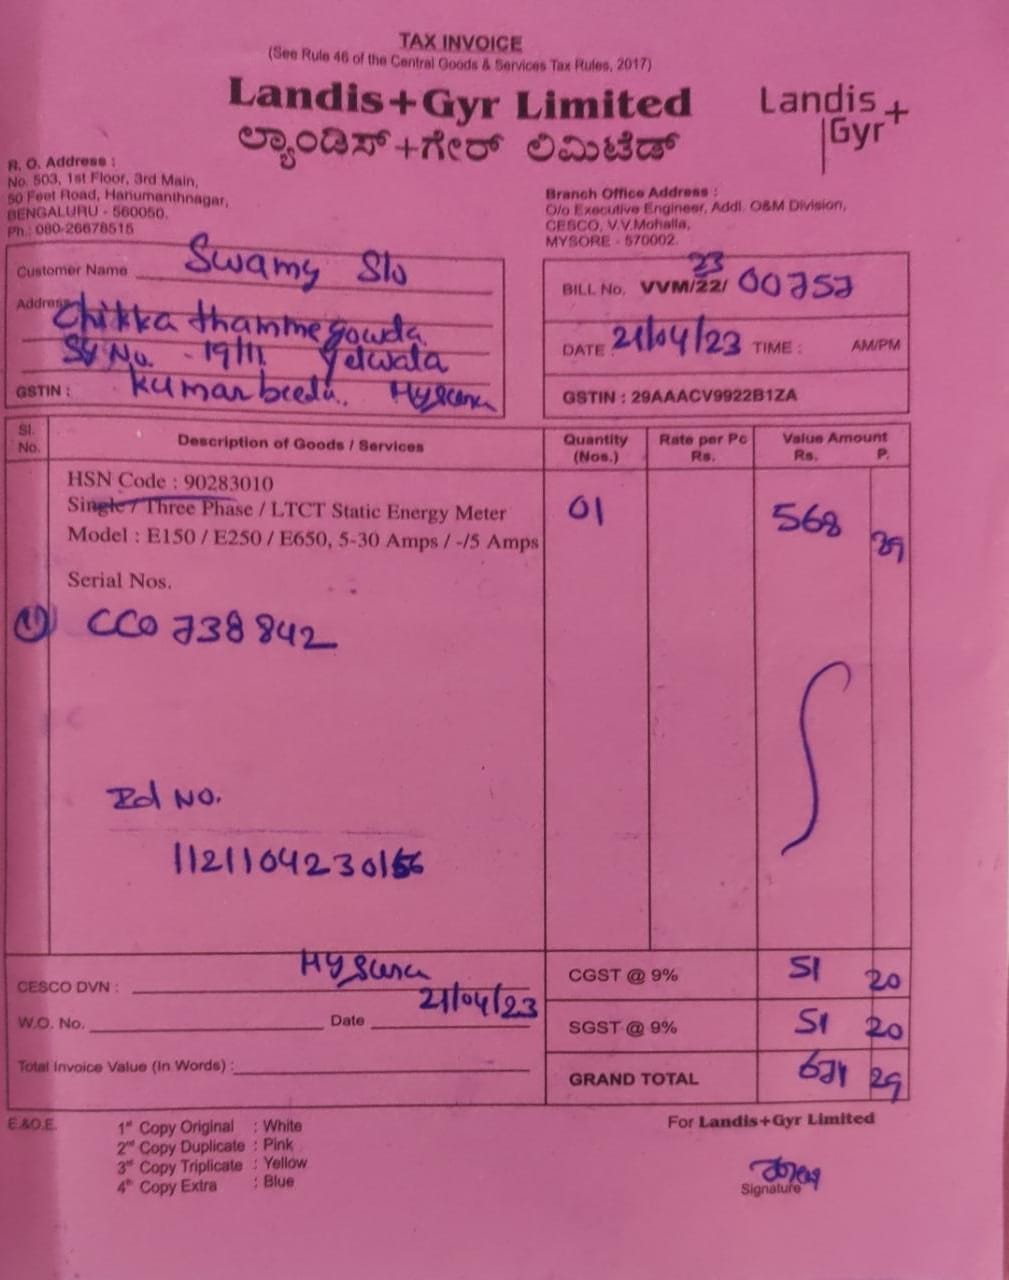 TAX INVOICE
(See Rule 46 of the Central Goods & Services Tax Rules, 2017)
Landis+Gyr Limited
Landis+
Gyr
ಲ್ಯಾಂಡಿಸ್+ಗೇರ್ ಲಿಮಿಟೆಡ್
R. O. Address :
No. 503, 1st Floor, 3rd Main,
50 Feet Road, Hanumanthnagar,
BENGALURU - 560050.
Ph.: 080-26678515
Branch Office Address :
O/o Executive Engineer, Addl. O&M Division,
CESCO, V.V.Mohalla,
MYSORE - 570002.
Customer Name Swamy S/o
Address Chikkathammegowda
Sy No. - 19/11. Yelwala
GSTIN : Kumarbeedu.
23
BILL No. VVM/22/ 00757
DATE 21/04/23 TIME : AM/PM
GSTIN : 29AAACV9922B1ZA
Sl. No. Description of Goods / Services Quantity (Nos.) Rate per Pc Rs. Value Amount Rs. P.
HSN Code : 90283010
Single / Three Phase / LTCT Static Energy Meter 01 568 89
Model : E150 / E250 / E650, 5-30 Amps / -/5 Amps
Serial Nos.
① CCO 738842
Rd No.
CESCO DVN :
CGST @ 9% 51 20
W.O. No. Date 21/04/23
SGST @ 9% 51 20
Total Invoice Value (In Words) :
GRAND TOTAL 671 29
E.&O.E.
1st Copy Original : White
2nd Copy Duplicate : Pink
3rd Copy Triplicate : Yellow
4th Copy Extra : Blue
For Landis+Gyr Limited
Signature